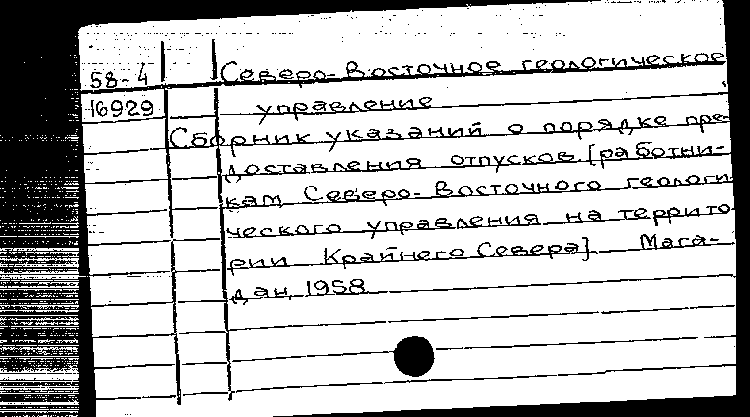 58-4 Северо-Восточное геологическое
16929 управление
Сборник указаний о порядке пре-
доставления отпусков [работни-
кам Северо-Восточного геологи-
ческого управления на террито-
рии Крайнего Севера]. Мага-
дан, 1958